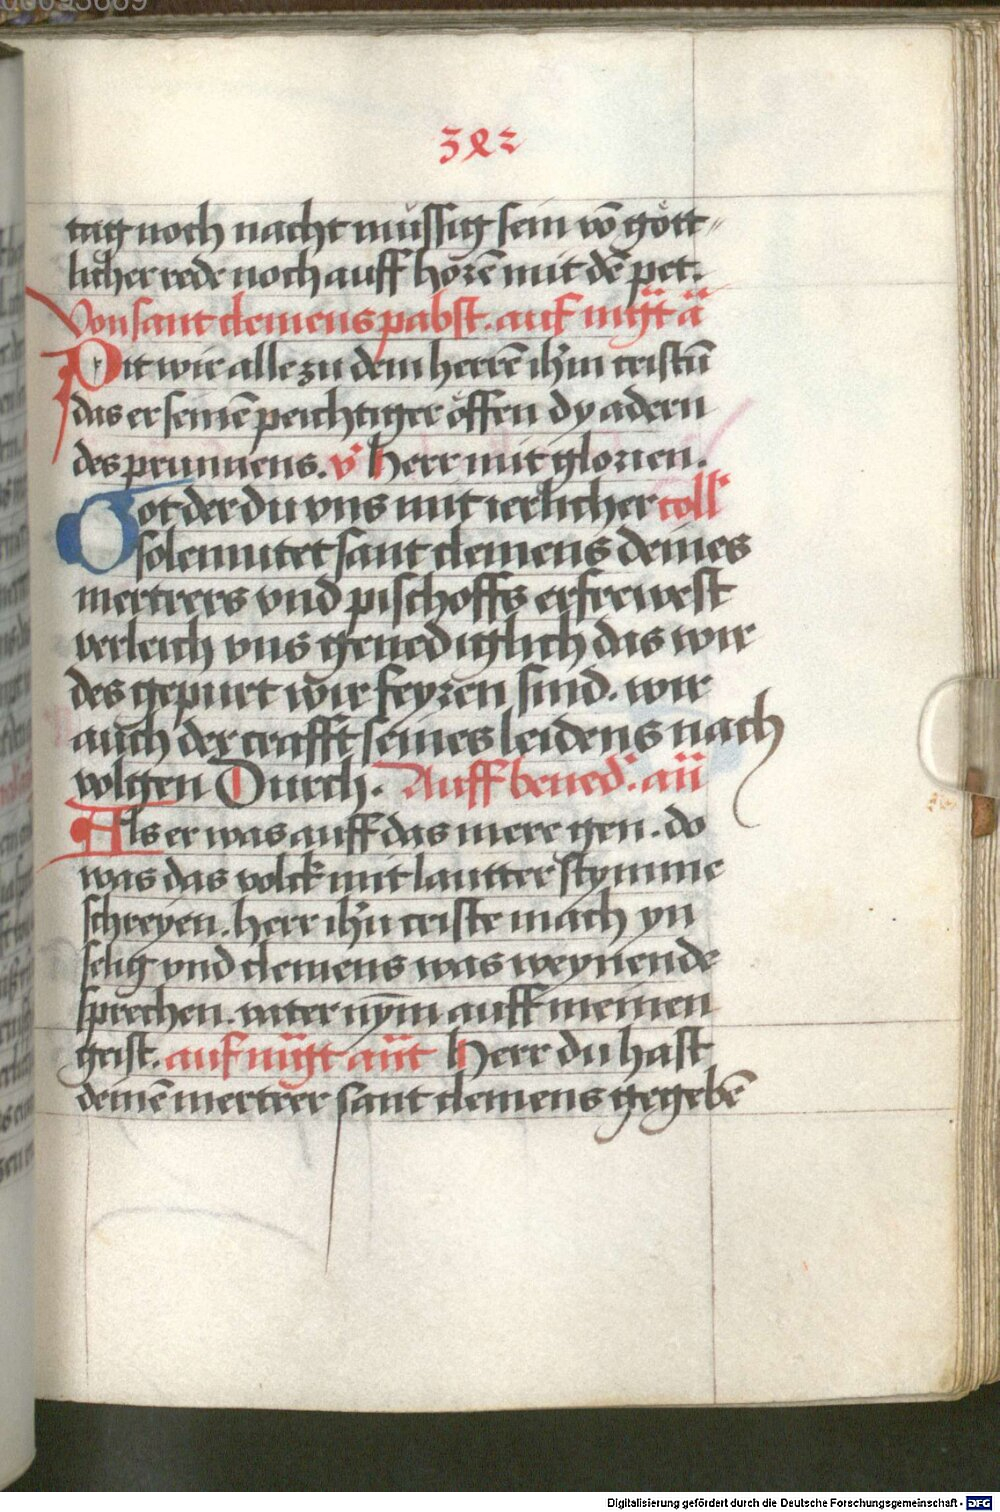 342
tag noch nacht müssig sein võ gött-
licher rede noch auff hörē mit dē pet.
Von sant clemens pabst. auf m̄gt ā
Pit wir alle zu dem herrē ih̄m cristū
das er seinē peichtiger öffen dy adern
des prunnens. v̾ Herr mit glorien.
Got der du vns mit ierlicher coll̾
solennitet sant clemens deines
mertrers vnd pischoffs erfrewest
verleich vns genediglich das wir
des gepurt wir feyren sind. wir
auch der crafft seines leidens nach
volgen Durch. Auff bened̾. an̄
Als er was auff das mere gen. do
was das volck mit lautter stymme
schreyen. herr ih̄u criste mach yn
selig vnd clemens was weynende
sprechen. vater nym̄ auff meinen
geist. auf m̄gt an̄t Herr du hast
deinē mertrer sant clemens gegebē
Digitalisierung gefördert durch die Deutsche Forschungsgemeinschaft - DFG